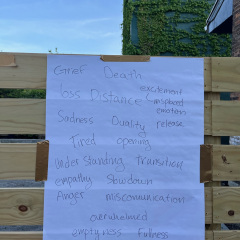 Grief Death
loss Distance excitement
misplaced
emotion
Sadness Quality of release
Tired opening
Understanding Transition
empathy Slowdown
Anger miscommunication
overwhelmed
emptyness Fullness